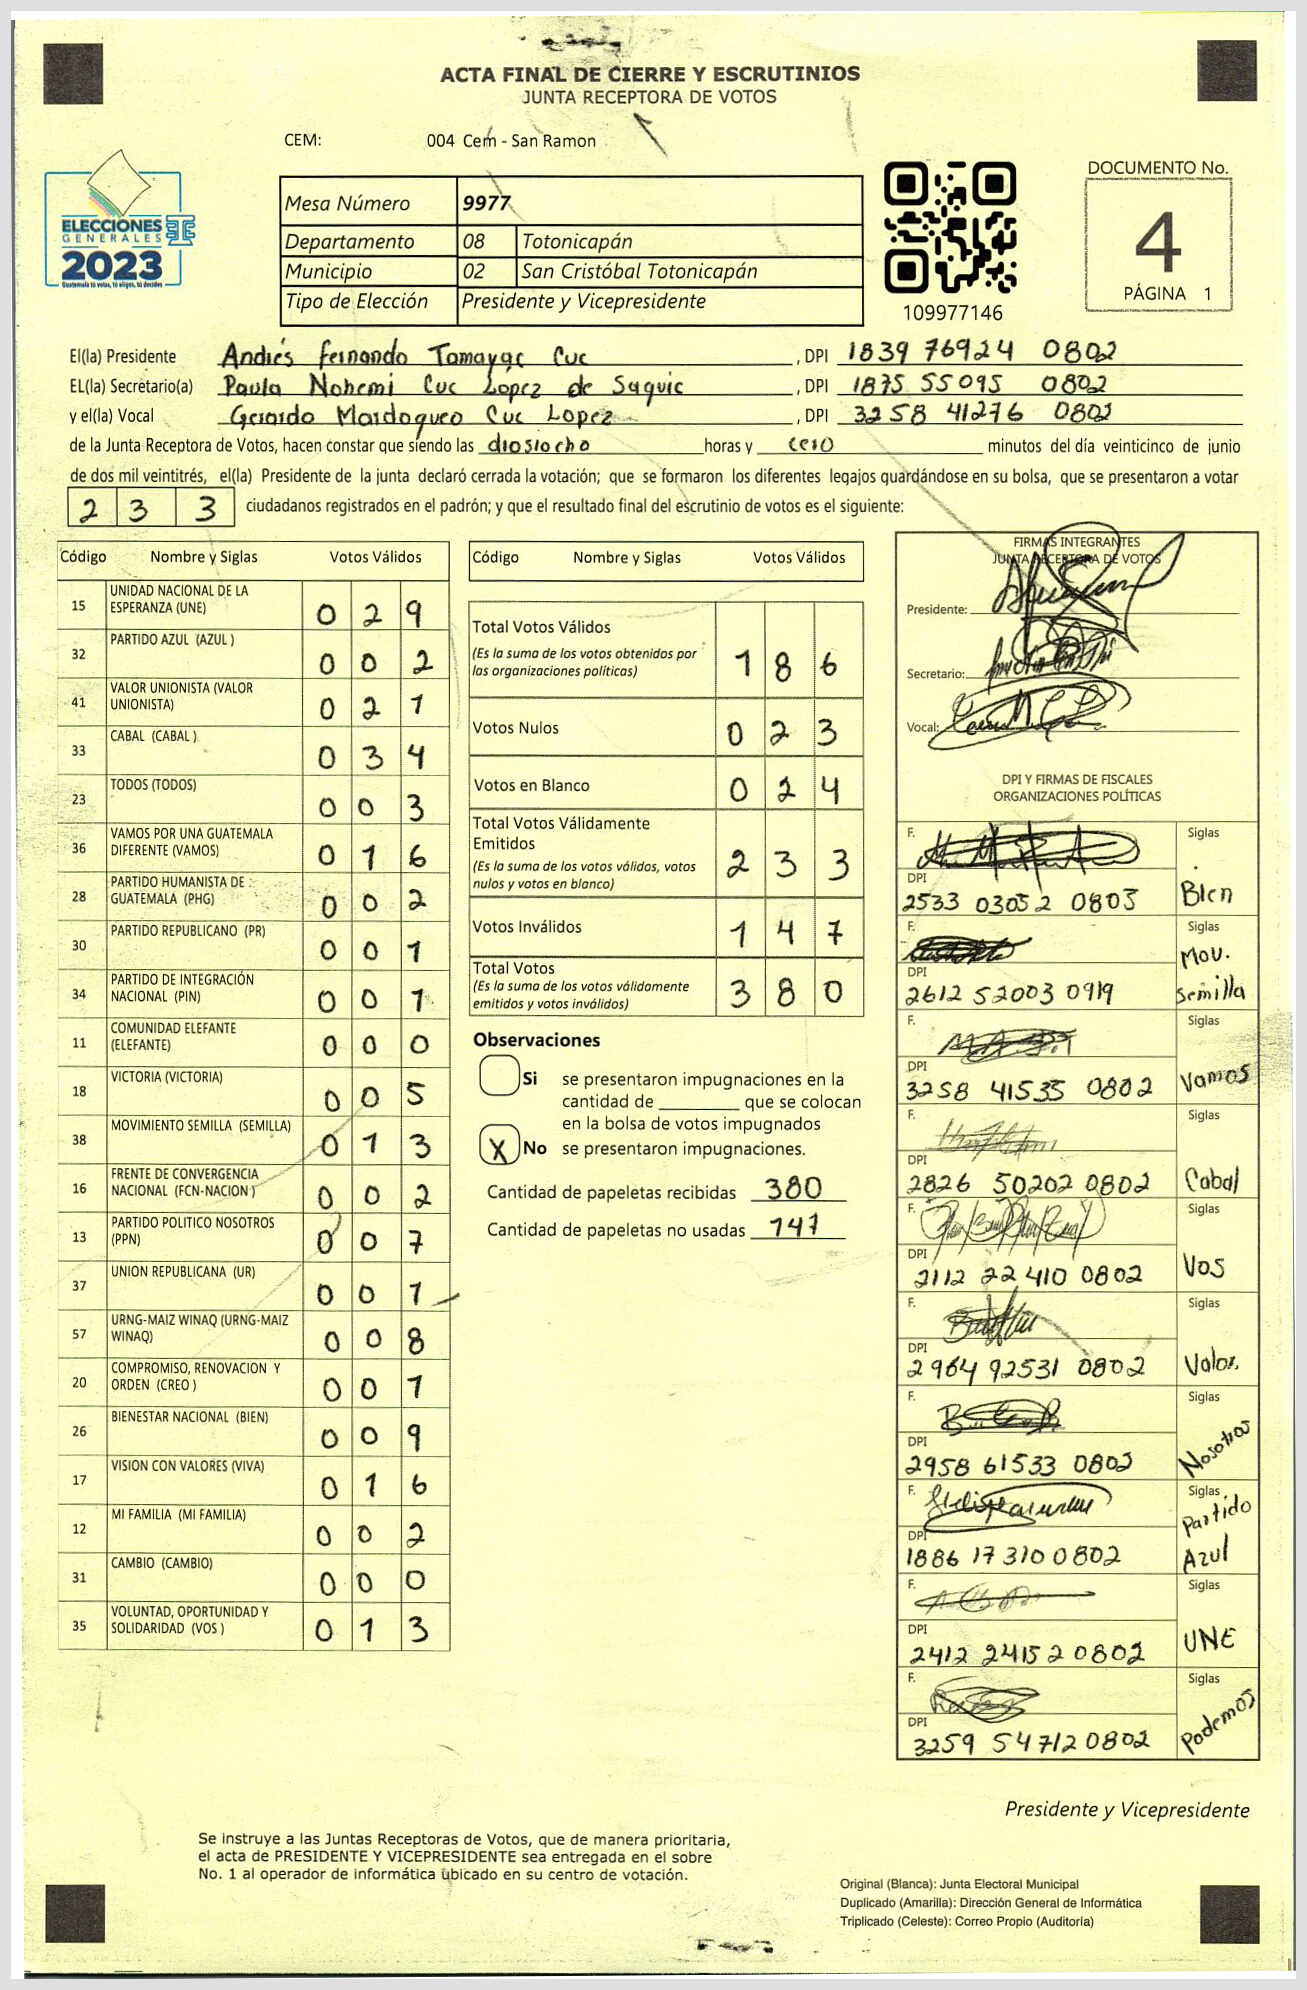 ACTA FINAL DE CIERRE Y ESCRUTINIOS
JUNTA RECEPTORA DE VOTOS
CEM: 004 Cem - San Ramon
ELECCIONES
GENERALES
2023
Guatemala tú votas, tú eliges, tú decides
Mesa Número 9977
Departamento 08 Totonicapán
Municipio 02 San Cristóbal Totonicapán
Tipo de Elección Presidente y Vicepresidente
109977146
DOCUMENTO No.
4
PÁGINA 1
El(la) Presidente Andrés Fernando Tamayac Cuc , DPI 1839 76924 0802
EL(la) Secretario(a) Paula Nohemi Cuc López de Saquic , DPI 1875 55095 0802
y el(la) Vocal Gerardo Mardoqueo Cuc Lopez , DPI 3258 41276 0802
de la Junta Receptora de Votos, hacen constar que siendo las diosiocho horas y cero minutos del día veinticinco de junio
de dos mil veintitrés, el(la) Presidente de la junta declaró cerrada la votación; que se formaron los diferentes legajos guardándose en su bolsa, que se presentaron a votar
2 3 3 ciudadanos registrados en el padrón; y que el resultado final del escrutinio de votos es el siguiente:
Código Nombre y Siglas Votos Válidos
15 UNIDAD NACIONAL DE LA ESPERANZA (UNE) 0 2 9
32 PARTIDO AZUL (AZUL ) 0 0 2
41 VALOR UNIONISTA (VALOR UNIONISTA) 0 2 1
33 CABAL (CABAL ) 0 3 4
23 TODOS (TODOS) 0 0 3
36 VAMOS POR UNA GUATEMALA DIFERENTE (VAMOS) 0 1 6
28 PARTIDO HUMANISTA DE GUATEMALA (PHG) 0 0 2
30 PARTIDO REPUBLICANO (PR) 0 0 1
34 PARTIDO DE INTEGRACIÓN NACIONAL (PIN) 0 0 1
11 COMUNIDAD ELEFANTE (ELEFANTE) 0 0 0
18 VICTORIA (VICTORIA) 0 0 5
38 MOVIMIENTO SEMILLA (SEMILLA) 0 1 3
16 FRENTE DE CONVERGENCIA NACIONAL (FCN-NACION ) 0 0 2
13 PARTIDO POLITICO NOSOTROS (PPN) 0 0 7
37 UNION REPUBLICANA (UR) 0 0 1
57 URNG-MAIZ WINAQ (URNG-MAIZ WINAQ) 0 0 8
20 COMPROMISO, RENOVACION Y ORDEN (CREO ) 0 0 1
26 BIENESTAR NACIONAL (BIEN) 0 0 9
17 VISION CON VALORES (VIVA) 0 1 6
12 MI FAMILIA (MI FAMILIA) 0 0 2
31 CAMBIO (CAMBIO) 0 0 0
35 VOLUNTAD, OPORTUNIDAD Y SOLIDARIDAD (VOS ) 0 1 3
Código Nombre y Siglas Votos Válidos
Total Votos Válidos 1 8 6
(Es la suma de los votos obtenidos por
las organizaciones políticas)
Votos Nulos 0 2 3
Votos en Blanco 0 2 4
Total Votos Válidamente
Emitidos 2 3 3
(Es la suma de los votos válidos, votos
nulos y votos en blanco)
Votos Inválidos 1 4 7
Total Votos 3 8 0
(Es la suma de los votos válidamente
emitidos y votos inválidos)
Observaciones
Si se presentaron impugnaciones en la
cantidad de ________ que se colocan
en la bolsa de votos impugnados
X No se presentaron impugnaciones.
Cantidad de papeletas recibidas 380
Cantidad de papeletas no usadas 147
FIRMAS INTEGRANTES
JUNTA RECEPTORA DE VOTOS
Presidente:
Secretario:
Vocal:
DPI Y FIRMAS DE FISCALES
ORGANIZACIONES POLÍTICAS
F. Siglas
DPI 2533 03052 0803 Bien
F. Siglas
DPI 2612 52003 0919 Mov. Semilla
F. Siglas
DPI 3258 41535 0802 Vamos
F. Siglas
DPI 2826 50202 0802 Cabal
F. Siglas
DPI 2112 22410 0802 Vos
F. Siglas
DPI 2964 92531 0802 Valor.
F. Siglas
DPI 2958 61533 0802 Nosotros
F. Siglas
DPI 1886 17310 0802 Partido Azul
F. Siglas
DPI 2412 24152 0802 UNE
F. Siglas
DPI 3259 54712 0802 Podemos
Presidente y Vicepresidente
Se instruye a las Juntas Receptoras de Votos, que de manera prioritaria,
el acta de PRESIDENTE Y VICEPRESIDENTE sea entregada en el sobre
No. 1 al operador de informática ubicado en su centro de votación.
Original (Blanca): Junta Electoral Municipal
Duplicado (Amarilla): Dirección General de Informática
Triplicado (Celeste): Correo Propio (Auditoría)